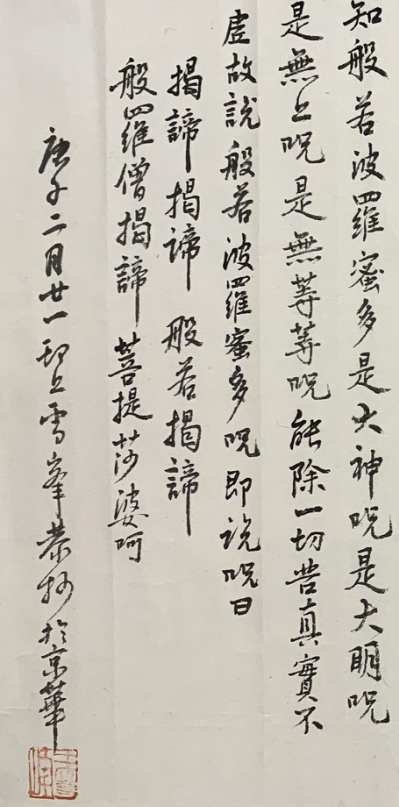 知般若波羅蜜多是大神咒是大明咒
是無上咒是無等等咒能除一切苦真實不
虛故說般若波羅蜜多咒即說咒曰
揭諦揭諦 般若揭諦
般羅僧揭諦 菩提莎婆呵
庚子二月廿一 雪峯恭抄於京華